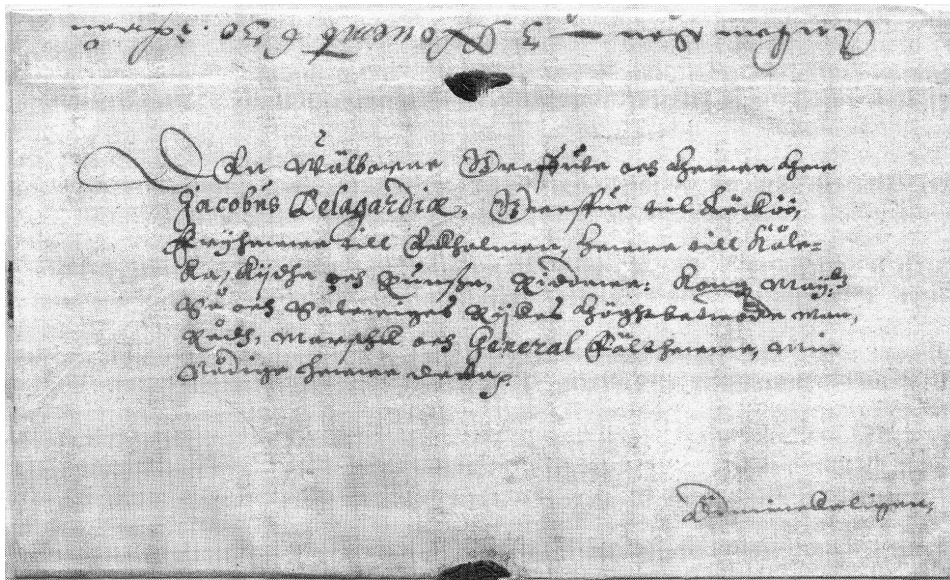 Den Wälborne Greffue och Herre Her
Jacobus Delagardiæ, Greffue till Läcköö,
Frijherre till Eekholmen, Herre till Kåle-
Ka, Kijdha och Runssa, Riddare: Kong: May:tz
Sw och Sweriges Rijkes Högtbetrodde Man,
Rådh, Marschk och General Fältherre, min
Nådige Herre detta
Ödmiukeligen,